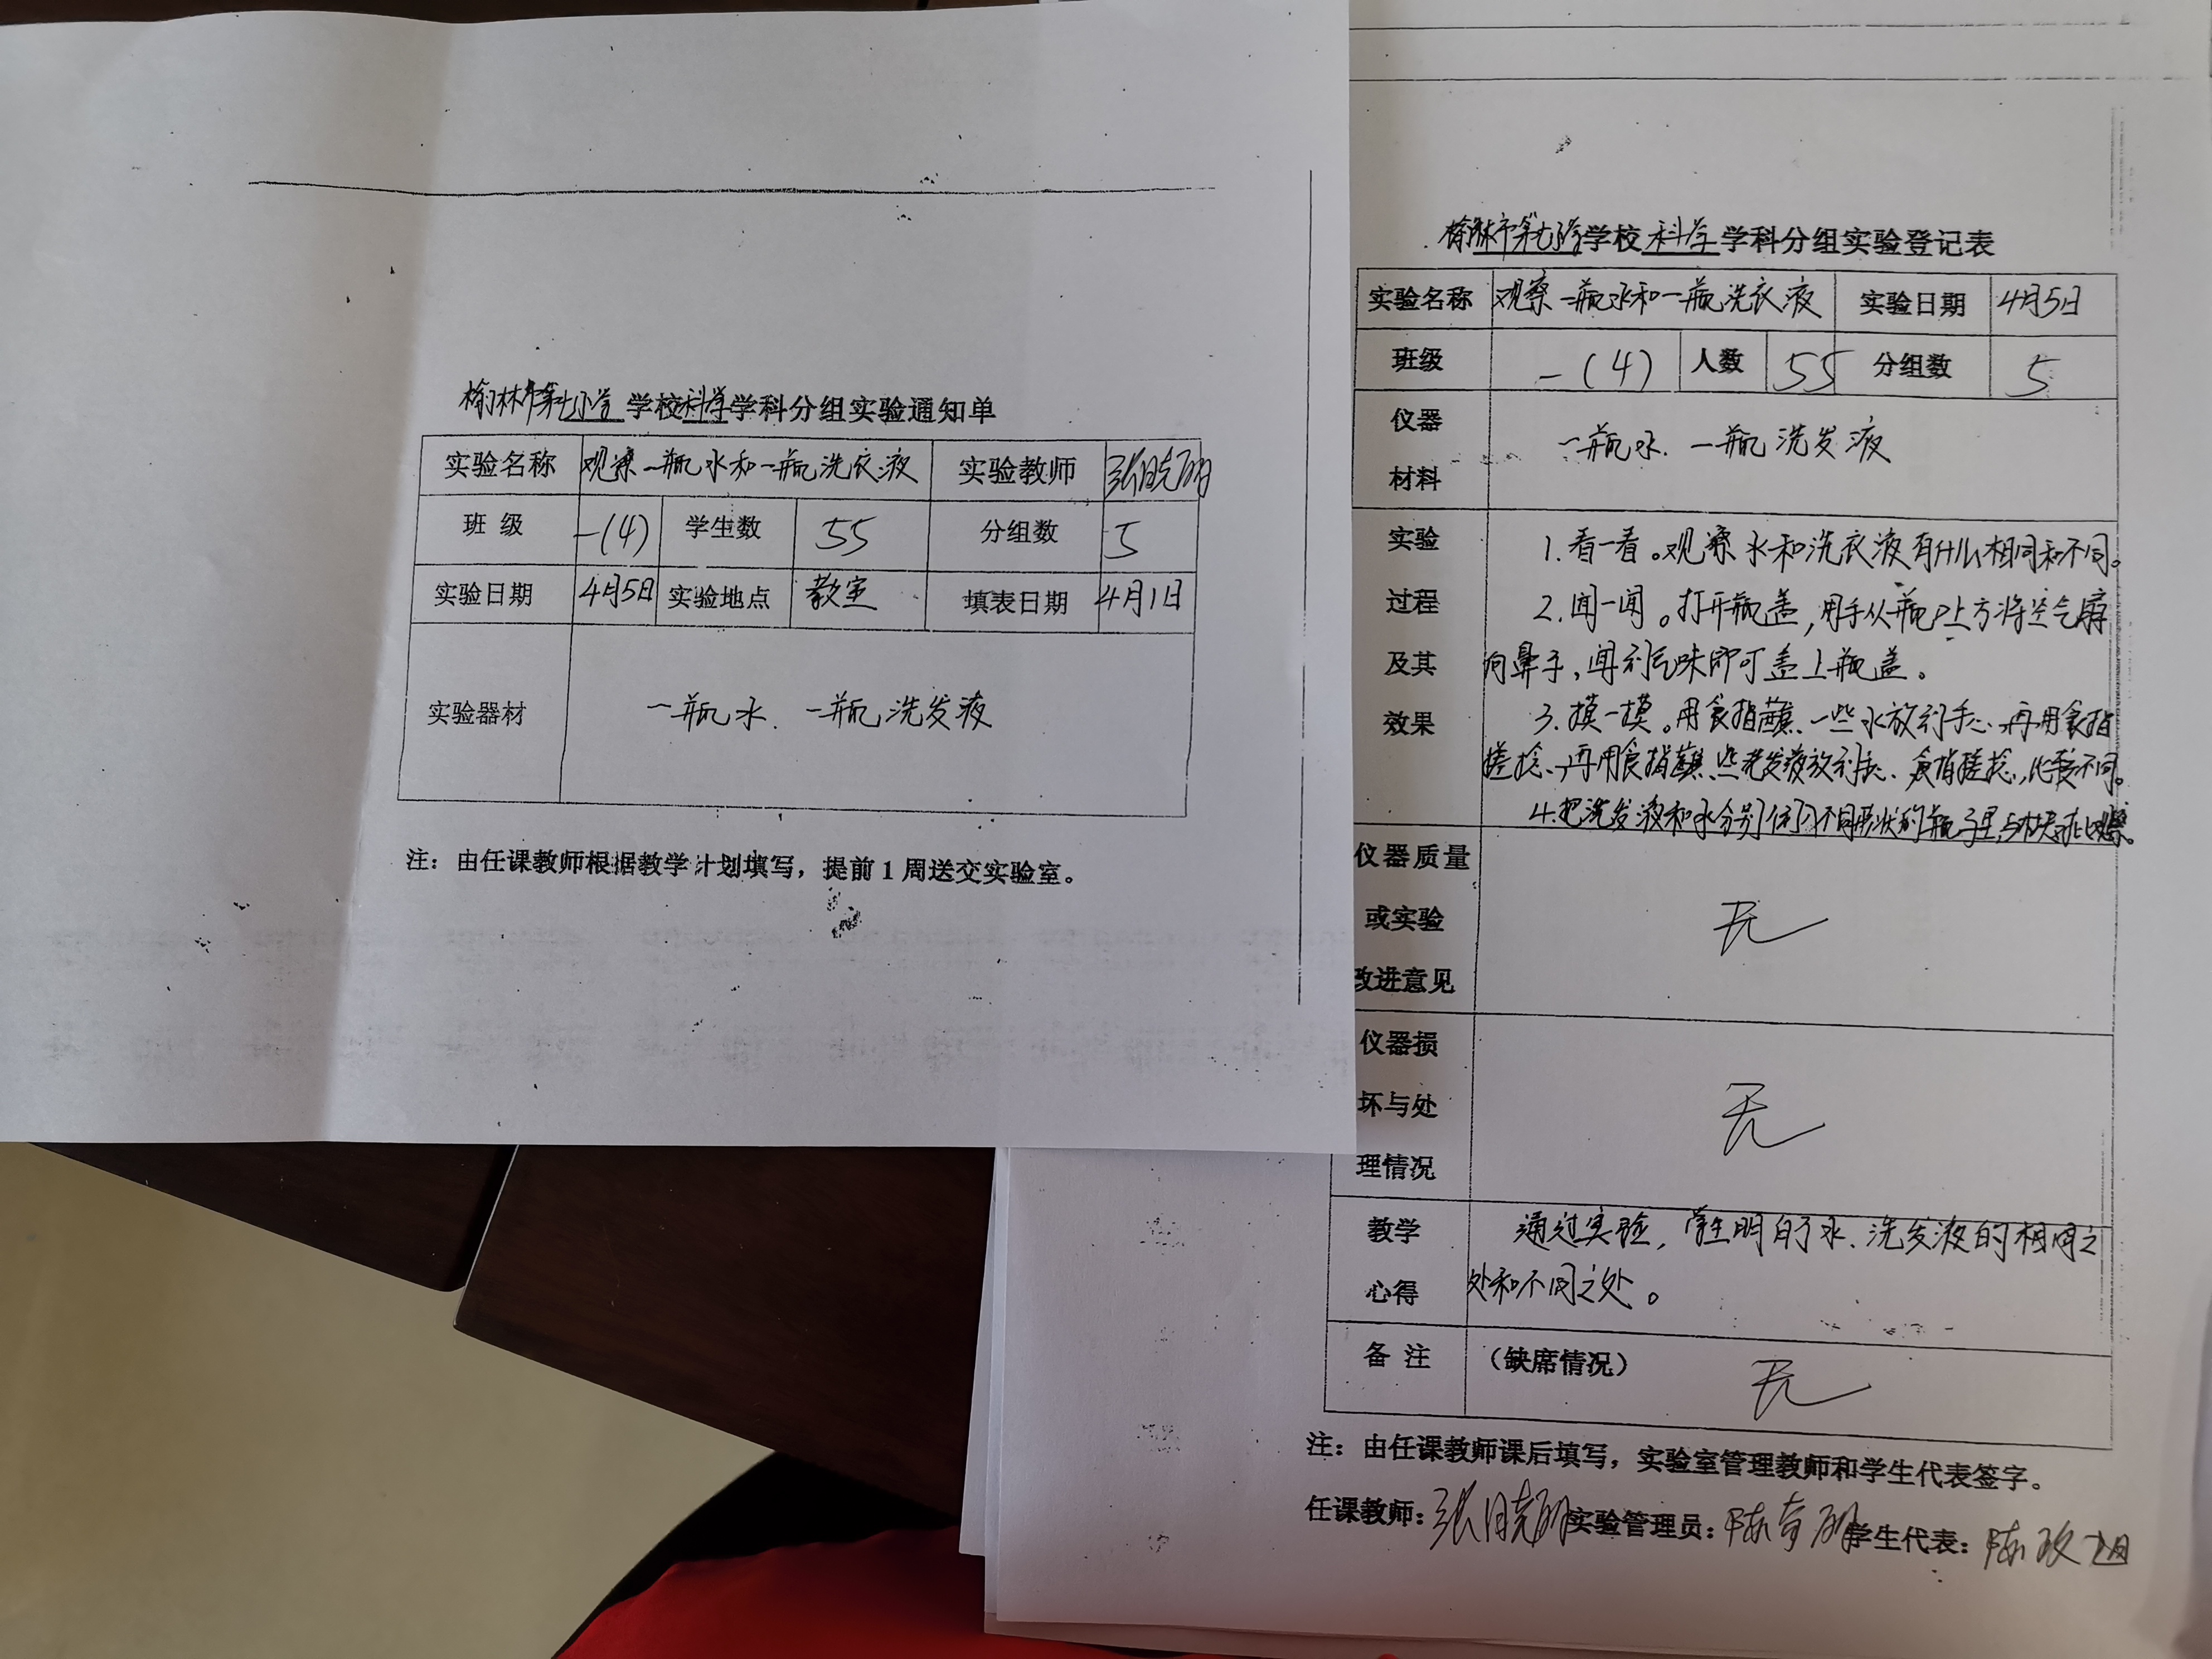 榆林市第七小学 学校 科学 学科分组实验通知单
实验名称 观察一瓶水和一瓶洗衣液 实验教师 张晓丽
班 级 一(4) 学生数 55 分组数 5
实验日期 4月5日 实验地点 教室 填表日期 4月1日
实验器材 一瓶水、一瓶洗发液
注：由任课教师根据教学计划填写，提前1周送交实验室。
榆林市第七小学学校 科学 学科分组实验登记表
实验名称 观察一瓶水和一瓶洗衣液 实验日期 4月5日
班级 一(4) 人数 55 分组数 5
仪器
材料
一瓶水、一瓶洗发液
实验
过程
及其
效果
1.看一看。观察水和洗衣液有什么相同和不同。
2.闻一闻。打开瓶盖，用手从瓶口上方将空气扇
向鼻子，闻到气味即可盖上瓶盖。
3.摸一摸。用食指蘸一些水放到手心，再用食指
搓捻，再用食指蘸些洗发液放到手心、食指搓捻，比较不同。
4.把洗发液和水分别倒入不同形状的瓶子里，
仪器质量
或实验
改进意见
无
仪器损
坏与处
理情况
无
教学
心得
通过实验，学生明白了水、洗发液的相同之
处和不同之处。
备 注 （缺席情况） 无
注：由任课教师课后填写，实验室管理教师和学生代表签字。
任课教师：张晓丽 实验管理员：陈 学生代表：陈